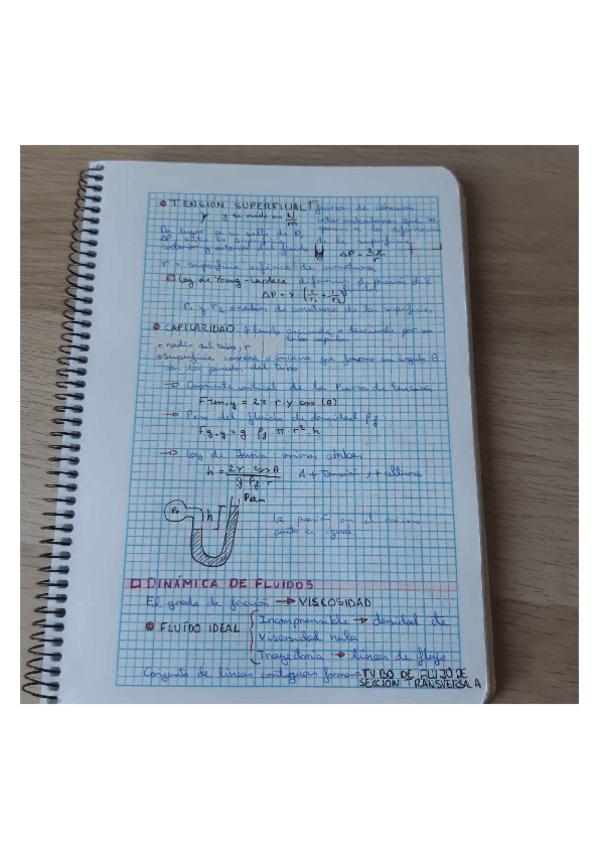 TENSION SUPERFICIAL fuerza de
γ y se mide en N/m
intermoleculares que se
ΔP = 2γ/r
r = superficie esférica de curvatura
Ley de Young-Laplace
ΔP = γ (1/r1 + 1/r2)
r1 y r2 = radios de curvatura de las superficies
CAPILARIDAD fluido asciende o desciende por un
tubo capilar
radio del tubo, r
superficie convexa o cóncava que forma un ángulo θ
con las paredes del tubo
→ Componente vertical de la fuerza de tensión
Ften,y = 2π · r · γ cos (θ)
→ Peso del fluido de densidad ρf
Fg,y = g ρf π · r² · h
→ Ley de Jurin:
h = 2γ · cos θ / g ρf r A + tensión, + altura
Patm
h
La presión en el mismo
punto es igual
DINÁMICA DE FLUIDOS
El grado de fricción → VISCOSIDAD
FLUÍDO IDEAL
Incompresible → densidad de
Viscosidad nula
Trayectoria → líneas de flujo
Conjunto de líneas contiguas forman → TUBO DE FLUJO DE
SECCIÓN TRANSVERSAL A